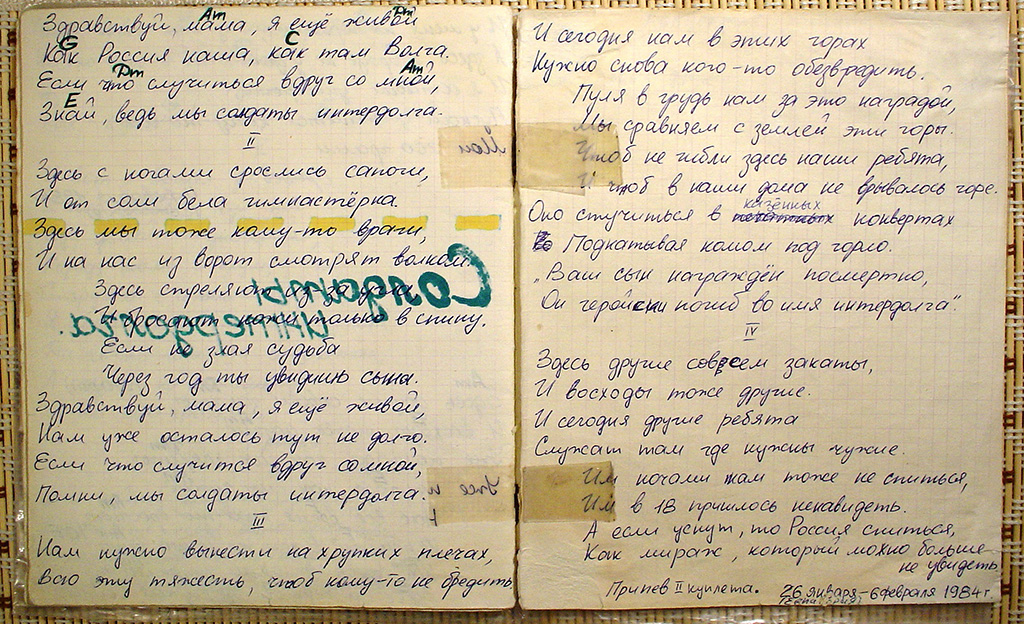 Am Dm
Здравствуй, мама, я ещё живой
G C
Как Россия наша, как там Волга.
Dm Am
Если что случиться вдруг со мной,
E
Знай, ведь мы солдаты интердолга.
II
Здесь с ногами срослись сапоги,
И от соли бела гимнастёрка.
Здесь мы тоже кому-то враги,
И на нас из ворот смотрят волком.
Здесь стреляют из-за угла
И бросают ножи только в спину.
Если не злая судьба
Через год ты увидишь сына.
Здравствуй, мама, я ещё живой,
Нам уже осталось тут не долго.
Если что случится вдруг со мной,
Помни, мы солдаты интердолга.
III
Нам нужно вынести на хрупких плечах,
Всю эту тяжесть, чтоб кому-то не бредить
Солдаты
интердолга.
И сегодня нам в этих горах
Нужно снова кого-то обезвредить.
Пуля в грудь нам за это наградой,
Мы сравняем с землей эти горы.
Чтоб не гибли здесь наши ребята,
И чтоб в наши дома не врывалось горе.
казённых
Оно стучиться в конвертах
Подкатывая комом под горло.
„Ваш сын награждён посмертно,
Он геройски погиб во имя интердолга".
IV
Здесь другие совсем закаты,
И восходы тоже другие.
И сегодня другие ребята
Служат там где нужны чужие.
Им ночами там тоже не спиться,
Им в 18 пришлось ненавидеть.
А если уснут, то Россия сниться,
Как мираж, который можно больше
не увидеть
Припев II куплета. 26 января – 6 февраля 1984 г.